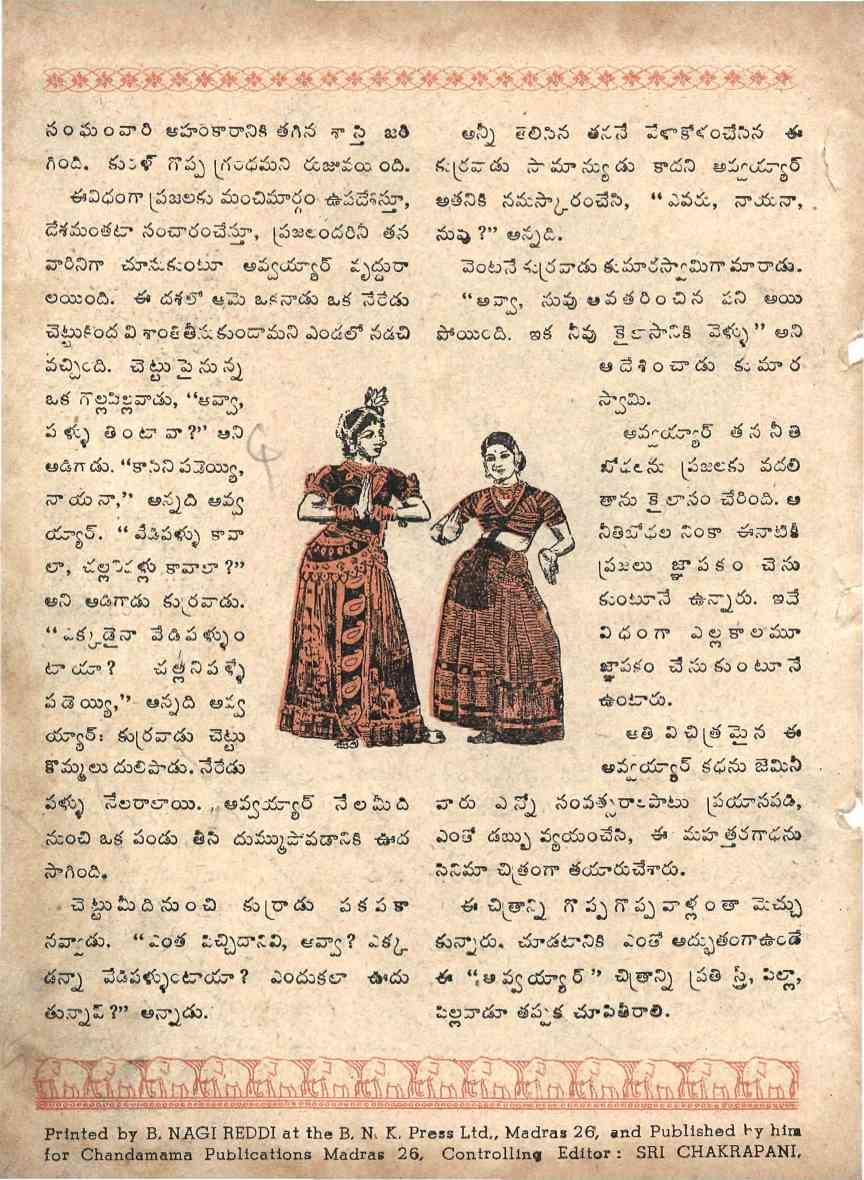 సంఘంవారి అహంకారానికి తగిన శాస్తి జరి
గింది. కురళ్ గొప్ప గ్రంధమని రుజువయింది.
ఈవిధంగా ప్రజలకు మంచిమార్గం ఉపదేశిస్తూ,
దేశమంతటా సంచారంచేస్తూ, ప్రజలందరినీ తన
వారినిగా చూసుకుంటూ అవ్వయ్యార్ వృద్ధురా
లయింది. ఈ దశలో ఆమె ఒకనాడు ఒక నేరేడు
చెట్టుకింద విశ్రాంతితీసుకుందామని ఎండలో నడచి
వచ్చింది. చెట్టుపైనున్న
ఒక గొల్లపిల్లవాడు, “అవ్వా,
పళ్ళు తింటావా?” అని
అడిగాడు. “కాసిని పడెయ్యి,
నాయనా,” అన్నది అవ్వ
య్యార్. “వేడిపళ్ళు కావా
లా, చల్లనిపళ్లు కావాలా?”
అని అడిగాడు కుర్రవాడు.
“ఎక్కడైనా వేడిపళ్ళుం
టాయా? చల్లనిపళ్ళే
పడెయ్యి,” అన్నది అవ్వ
య్యార్: కుర్రవాడు చెట్టు
కొమ్మలు దులిపాడు. నేరేడు
పళ్ళు నేలరాలాయి. అవ్వయ్యార్ నేలమీది
నుంచి ఒక పండు తీసి దుమ్ముపోవడానికి ఊద
సాగింది.
చెట్టుమీదినుంచి కుర్రాడు పకపకా
నవ్వాడు. “ఎంత పిచ్చిదానివి, అవ్వా? ఎక్క
డన్నా వేడిపళ్ళుంటాయా? ఎందుకలా ఊదు
తున్నావ్?” అన్నాడు.
అన్నీ తెలిసిన తననే వేళాకోళంచేసిన ఈ
కుర్రవాడు సామాన్యుడు కాదని అవ్వయ్యార్
అతనికి నమస్కారంచేసి, “ఎవరు, నాయనా,
నువు?” అన్నది.
వెంటనే కుర్రవాడు కుమారస్వామిగా మారాడు.
“అవ్వా, నువు అవతరించిన పని అయి
పోయింది. ఇక నీవు కైలాసానికి వెళ్ళు” అని
ఆదేశించాడు కుమార
స్వామి.
అవ్వయ్యార్ తన నీతి
బోధలను ప్రజలకు వదలి
తాను కైలాసం చేరింది. ఆ
నీతిబోధల నింకా ఈనాటికీ
ప్రజలు జ్ఞాపకం చేసు
కుంటూనే ఉన్నారు. ఇదే
విధంగా ఎల్లకాలమూ
జ్ఞాపకం చేసుకుంటూనే
ఉంటారు.
అతి విచిత్రమైన ఈ
అవ్వయ్యార్ కథను జెమినీ
వారు ఎన్నో సంవత్సరాలపాటు ప్రయాసపడి,
ఎంతో డబ్బు వ్యయంచేసి, ఈ మహత్తరగాధను
సినిమా చిత్రంగా తయారుచేశారు.
ఈ చిత్రాన్ని గొప్పగొప్పవాళ్లంతా మెచ్చు
కున్నారు. చూడటానికి ఎంతో అద్భుతంగాఉండే
ఈ “అవ్వయ్యార్” చిత్రాన్ని ప్రతి స్త్రీ, పిల్లా,
పిల్లవాడూ తప్పక చూపితీరాలి.
Printed by B. NAGI REDDI at the B. N. K. Press Ltd., Madras 26, and Published by him
for Chandamama Publications Madras 26, Controlling Editor: SRI CHAKRAPANI,